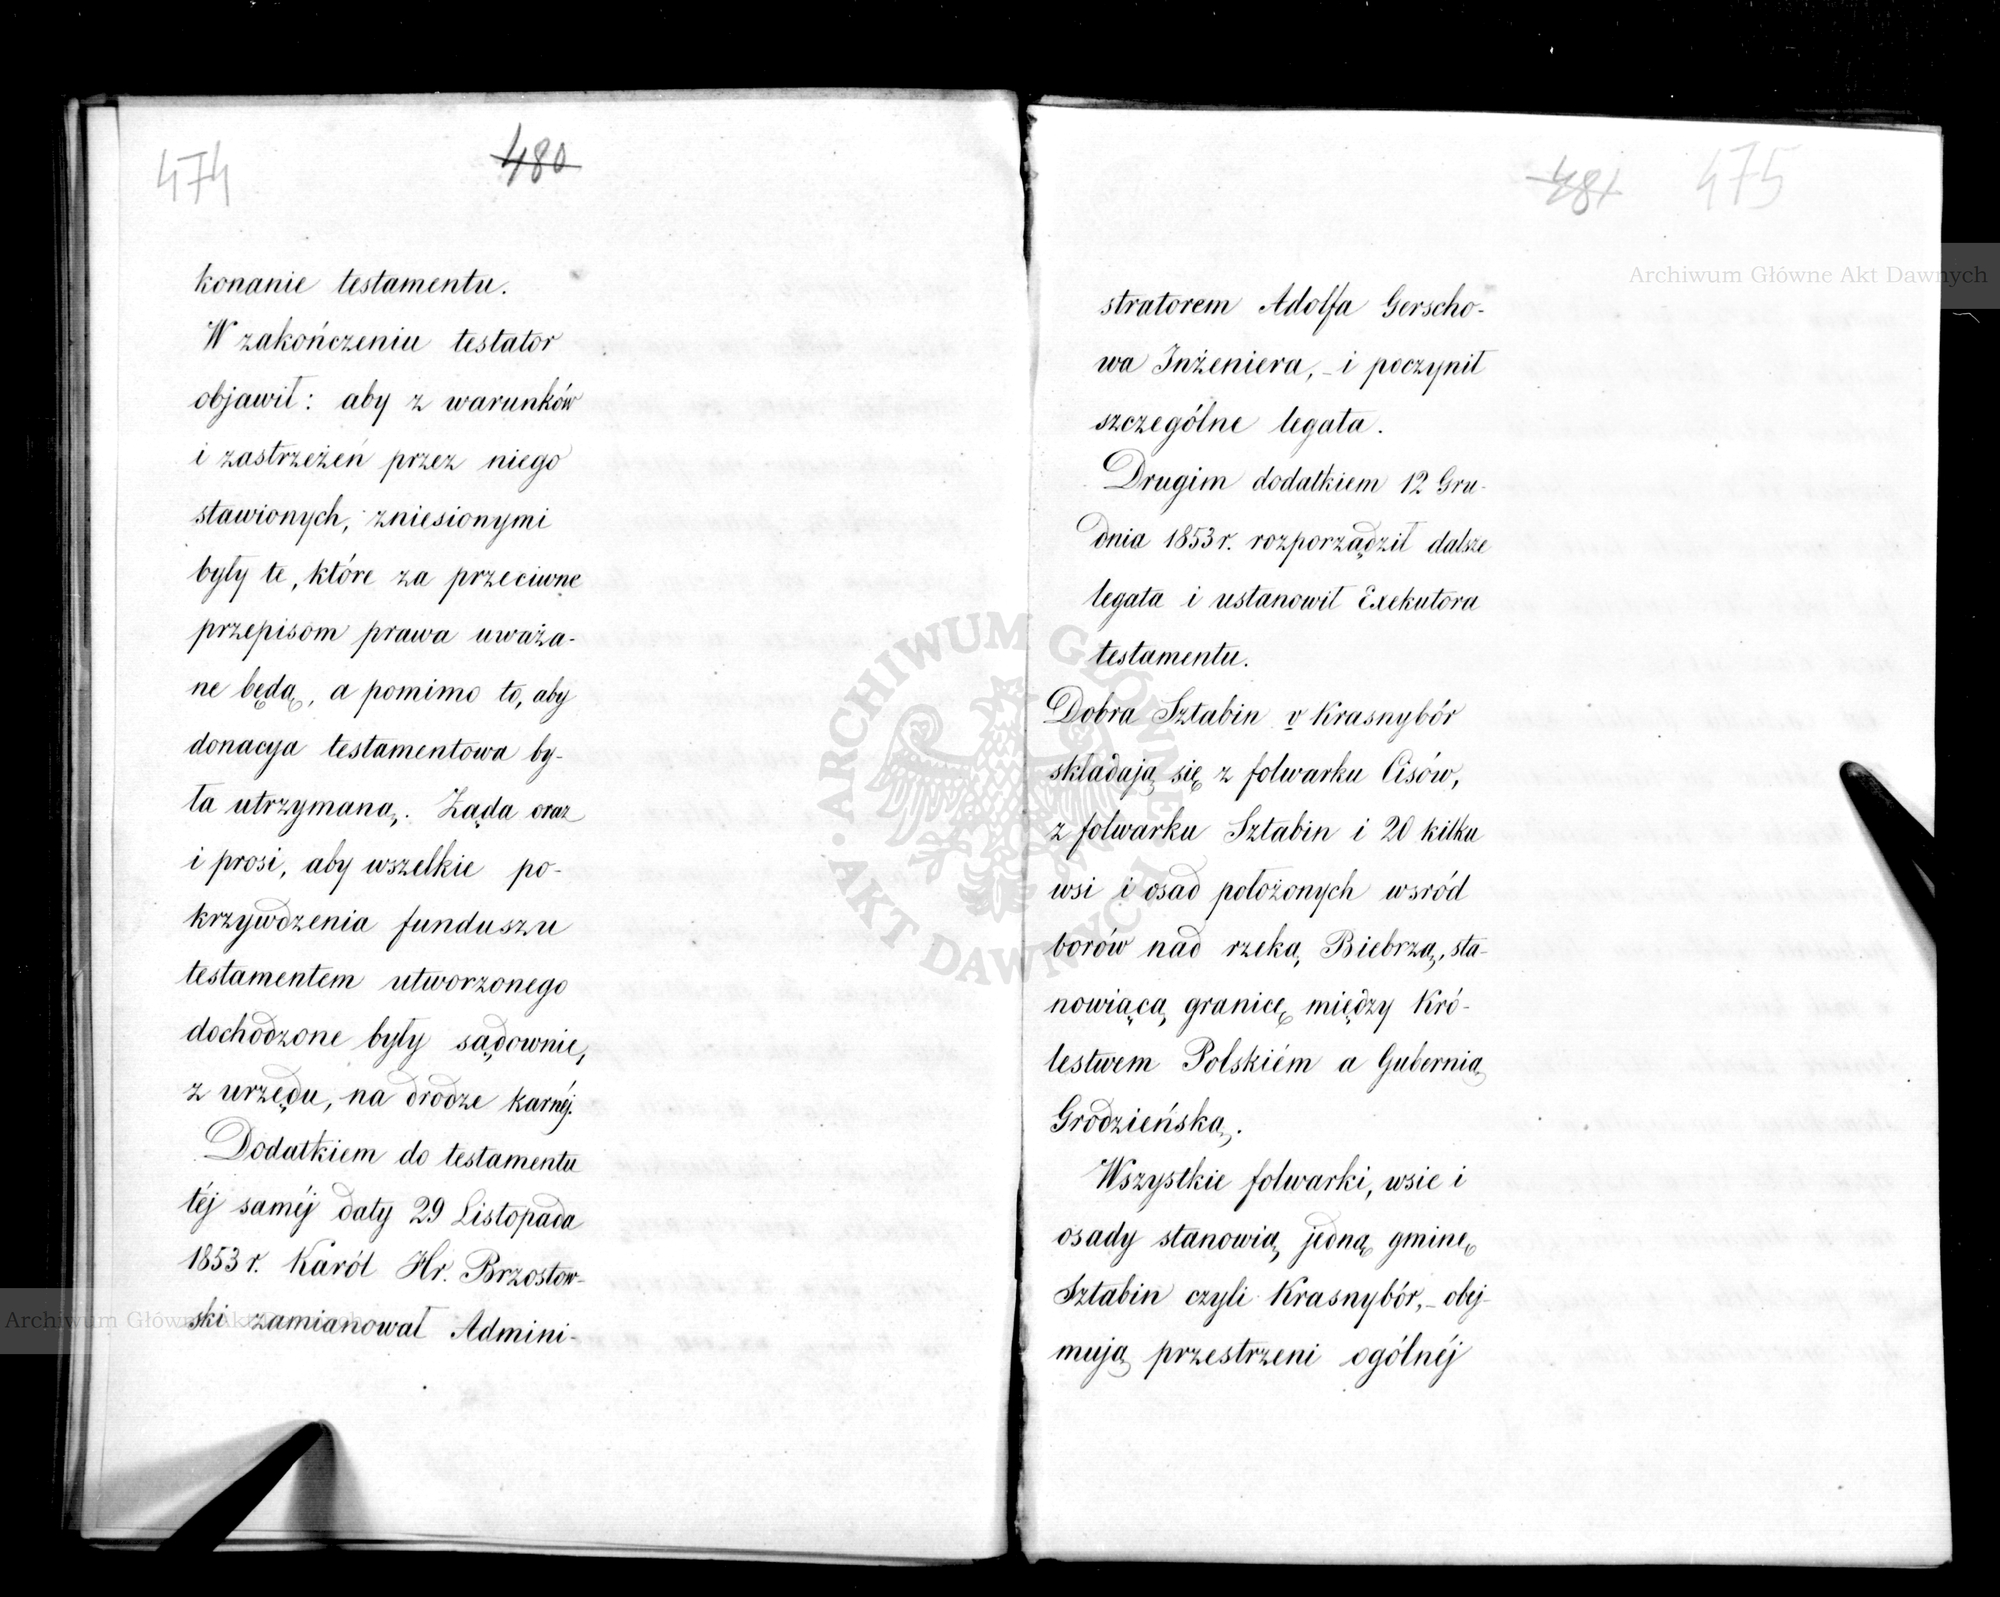 474
480
konanie testamentu.
W zakończeniu testator
objawił: aby z warunków
i zastrzeżeń przez niego
stawionych, zniesionymi
były te, które za przeciwne
przepisom prawa uważa-
ne będą, a pomimo to, aby
donacya testamentowa by-
ła utrzymaną. Żąda oraz
i prosi, aby wszelkie po-
krzywdzenia funduszu
testamentem utworzonego
dochodzone były sądownie,
z urzędu, na drodze karnéj.
Dodatkiem do testamentu
téj saméj daty 29 Listopada
1853 r. Karól Hr. Brzostow-
ski zamianował Admini-
481
475
stratorem Adolfa Gerscho-
wa Inżeniera, - i poczynił
szczególne legata.
Drugim dodatkiem 12 Gru-
dnia 1853 r. rozporządził dalsze
legata i ustanowił Exekutora
testamentu.
Dobra Sztabin v Krasnybór
składają się z folwarku Cisów,
z folwarku Sztabin i 20 kilku
wsi i osad położonych wsród
borów nad rzeką Biebrzą, sta-
nowiącą granicę między Kró-
lestwem Polskiém a Gubernią
Grodzieńską.
Wszystkie folwarki, wsie i
osady stanowią jedną gminę
Sztabin czyli Krasnybór, - obej-
mują przestrzeni ogólnéj
Archiwum Główne Akt Dawnych
ARCHIWUM GŁÓWNE AKT DAWNYCH
Archiwum Główne Akt Dawnych